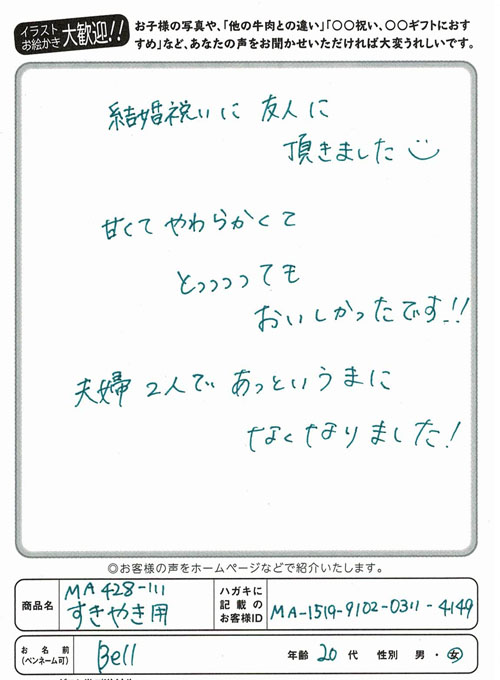 イラスト
お絵かき
大歓迎!!
お子様の写真や、「他の牛肉との違い」「〇〇祝い、〇〇ギフトにおす
すめ」など、あなたの声をお聞かせいただければ大変うれしいです。
結婚祝いに 友人に
頂きました
甘くて やわらかくて
とっっっっても
おいしかったです!!
夫婦 2人で あっというまに
なくなりました!
◎お客様の声をホームページなどで紹介いたします。
商品名
MA428-111
すきやき用
ハガキに
記載の
お客様ID
MA-1519-9102-0311-4149
お名前
(ペンネーム可)
Bell
年齢 20 代 性別 男・女